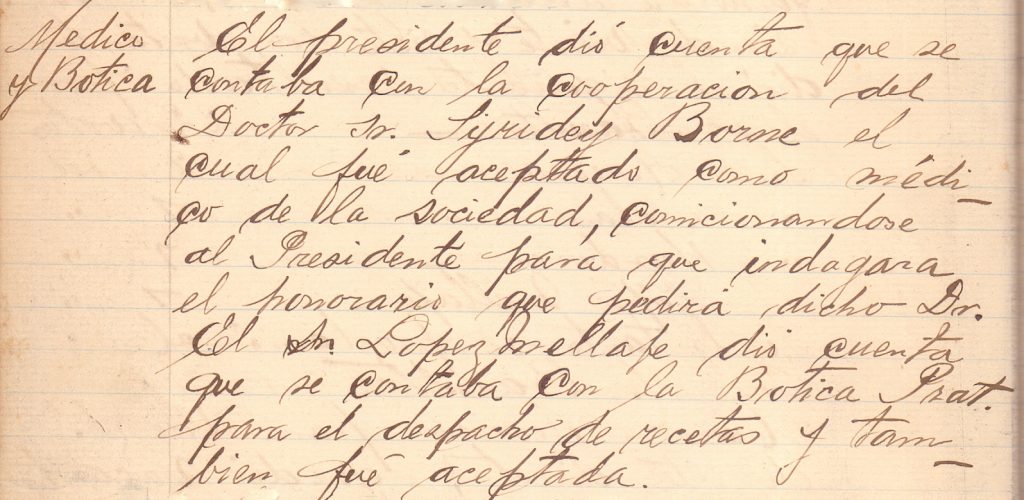 Medico
y Botica
El presidente dió cuenta que se
contaba con la cooperacion del
Doctor Sr. Borne el
cual fué aceptado como médi-
co de la sociedad, comicionandose
al Presidente para que indagara
el honorario que pedirá dicho Dr.
El Sr. Lopez Mellafe dió cuenta
que se contaba con la Botica Prat.
para el despacho de recetas y tam-
bien fué aceptada.